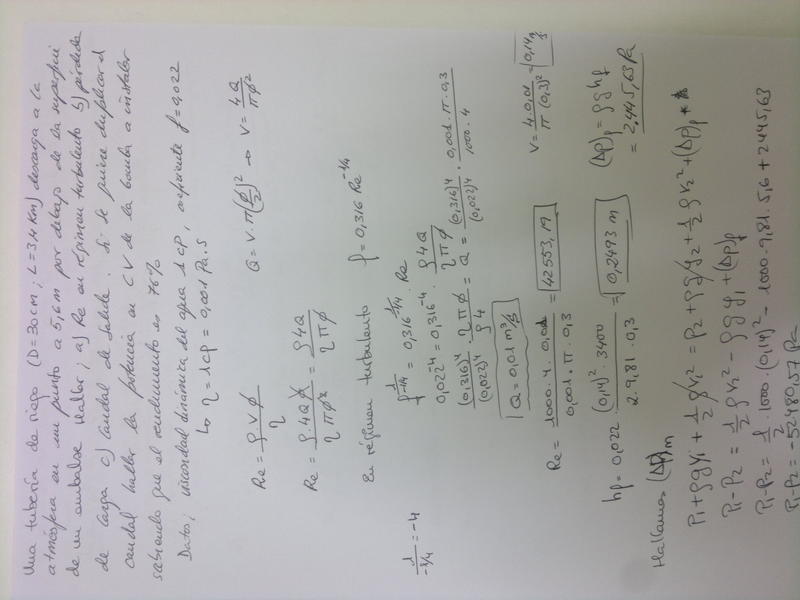 Una tubería de riego (D=30cm; L=3,4Km) descarga a la
atmósfera en un punto a 5,6m por debajo de la superfici
de un embalse Hallar; a) Re en régimen turbulento b) pérdida
de carga c) caudal de salida. Si se quiere duplicar el
caudal hallar la potencia en CV de la bomba a instalar
sabiendo que el rendimiento es 76%
Datos; viscosidad dinámica del agua 1cP, coeficiente f=0,022
↳ η = 1cP = 0,001 Pa·s
Re = ρvϕ/η
Q = v·π(ϕ/2)² → v = 4Q/πϕ²
Re = ρ4Qϕ/ηπϕ² = ρ4Q/ηπϕ
En régimen turbulento f = 0,316 Re^-1/4
1/-1/4 = -4
0,022^-4 = 0,316^-4 · ρ4Q/ηπϕ
(0,316)^4/(0,022)^4 · ηπϕ/ρ4 = Q = (0,316)^4/(0,022)^4 · 0,001·π·0,3/1000·4
Q = 0,01 m³/s
Re = 1000·4·0,01/0,001·π·0,3 = 42553,19
v = 4·0,01/π(0,3)² = 0,14 m/s
hf = 0,022 (0,14)²·3400/2·9,81·0,3 = 0,2493 m
(Δp)f = ρghf
= 2.445,63 Pa
Hallamos (Δp)m
P1+ρgy1+½ρv1² = P2+ρgy2+½ρv2²+(Δp)f
P1-P2 = ½ρv2² - ρgy1 + (Δp)f
P1-P2 = ½·1000·(0,14)² - 1000·9,81·5,6 + 2445,63
P1-P2 = -52480,57 Pa